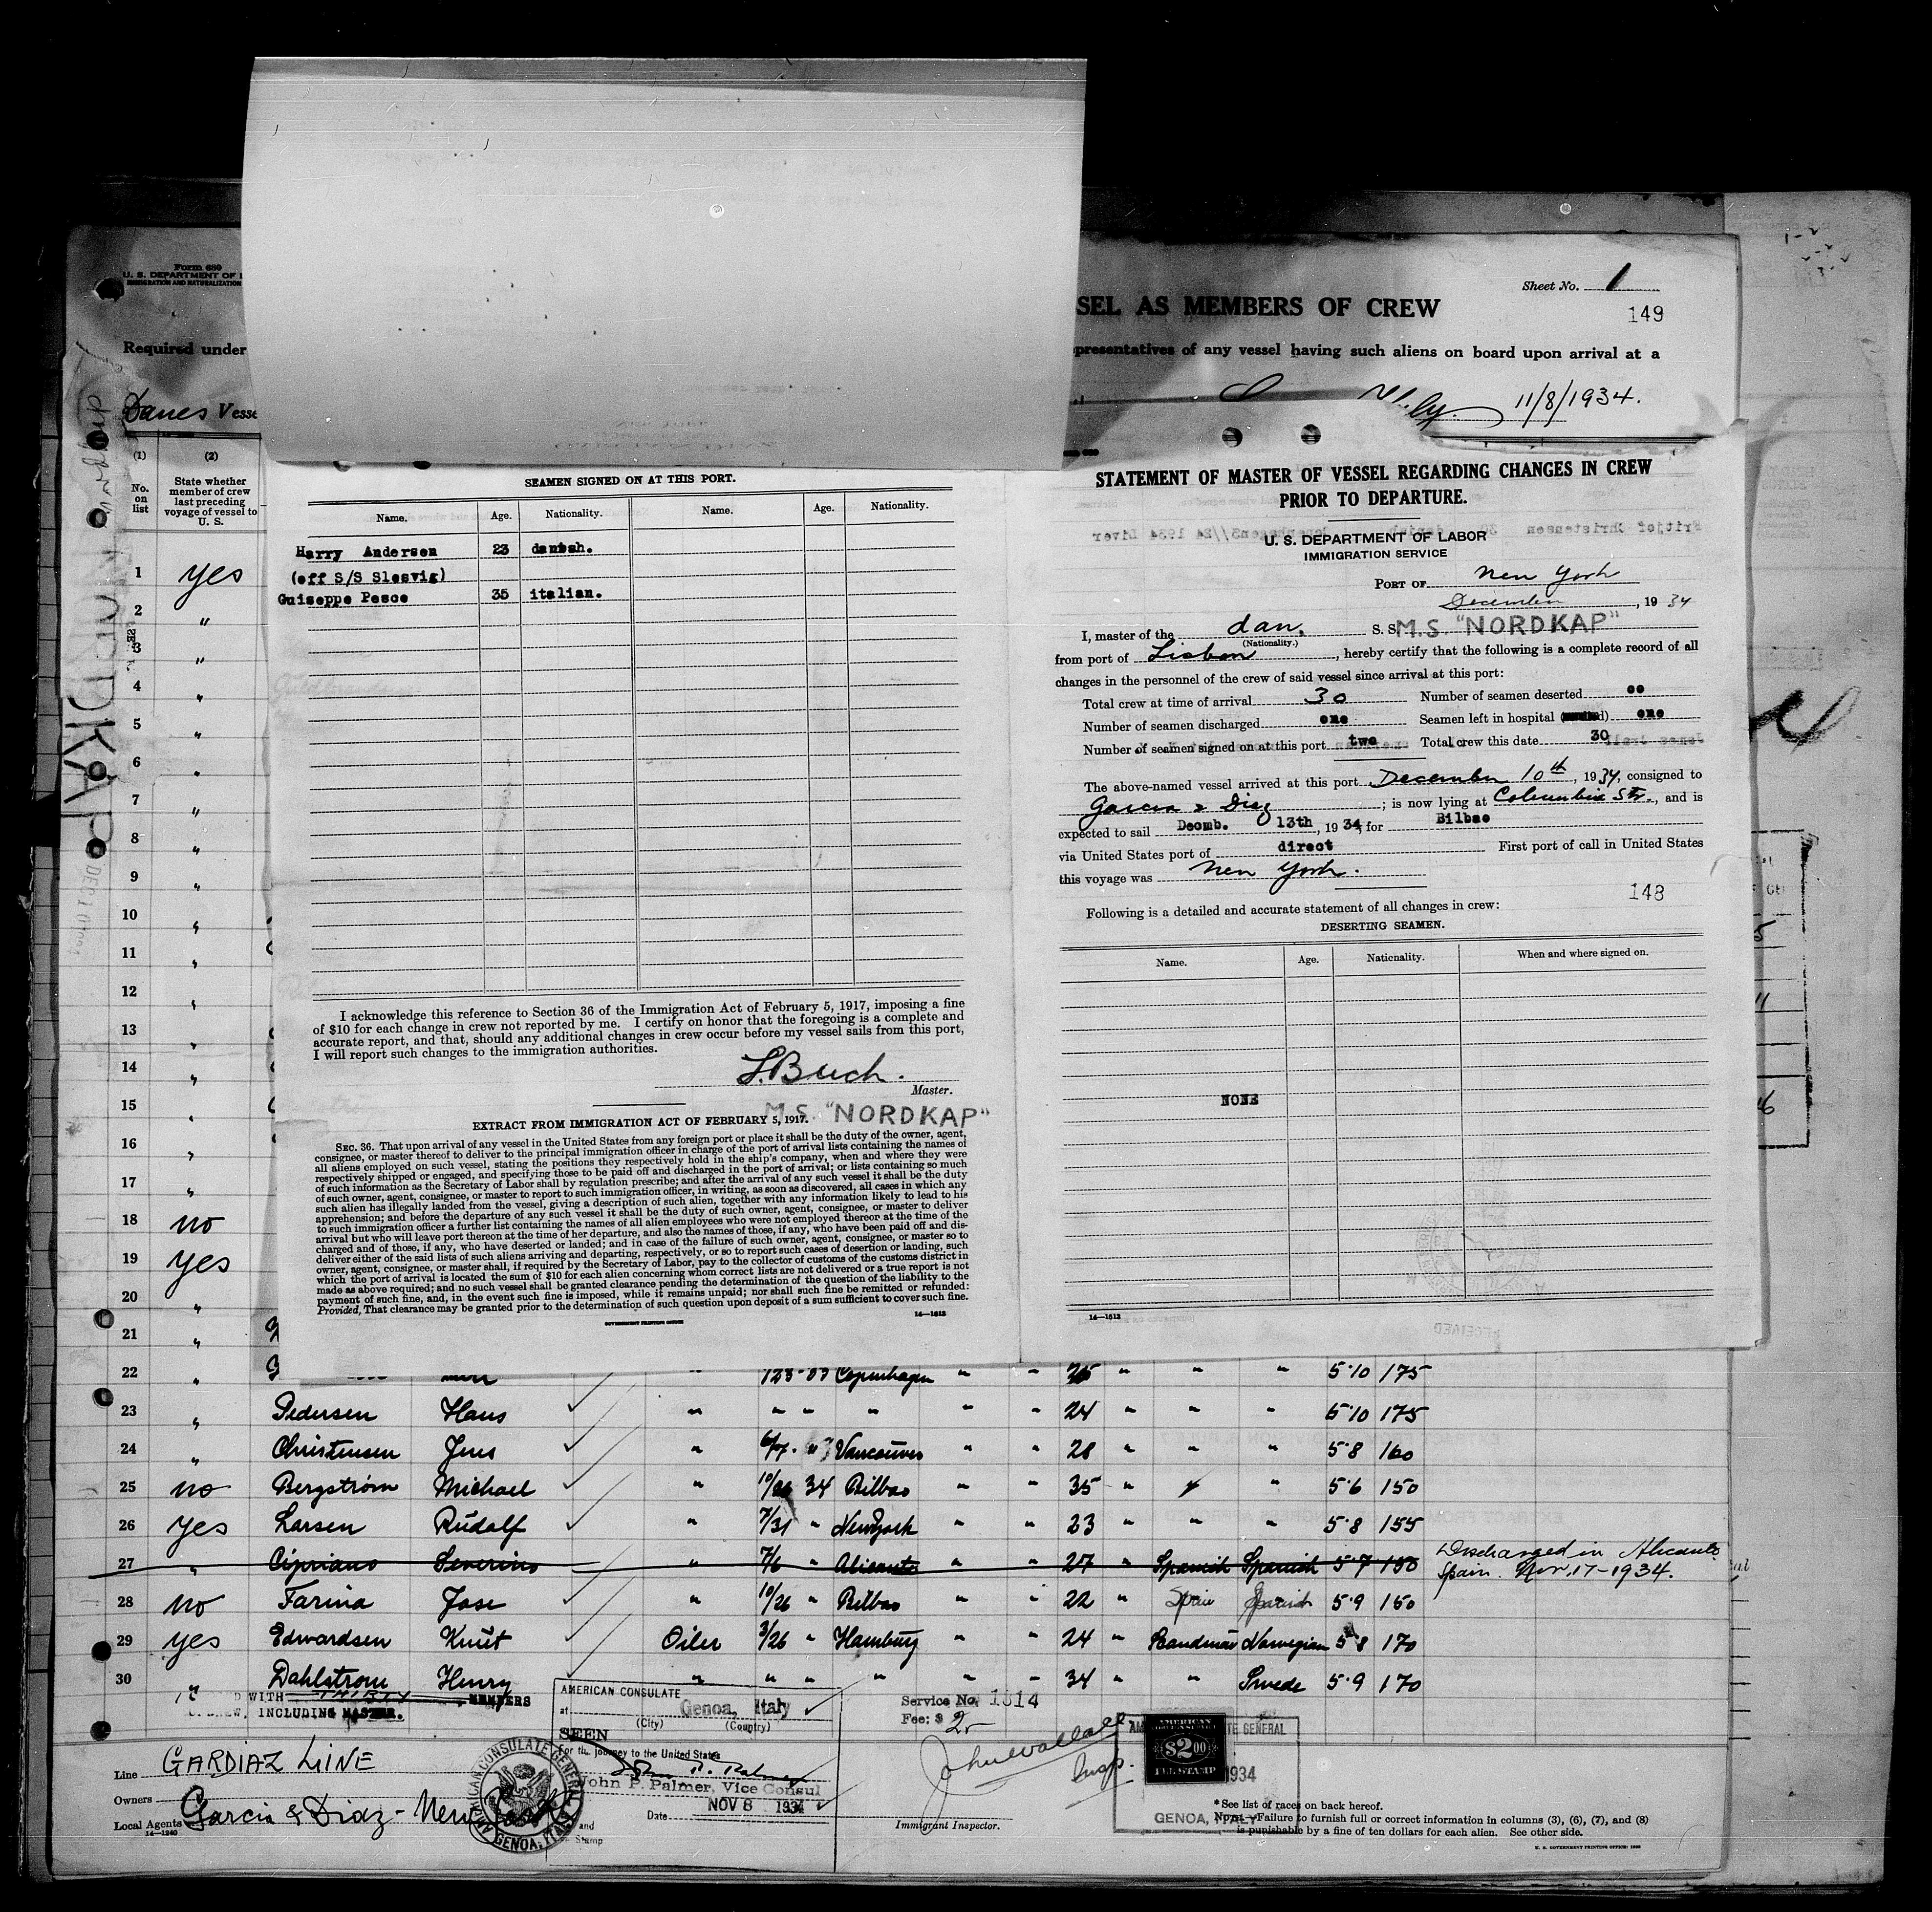 Form 680
U. S. DEPARTMENT OF
IMMIGRATION AND NATURALIZATION
Sheet No. 1
SEL AS MEMBERS OF CREW
149
Required under
presentatives of any vessel having such aliens on board upon arrival at a
Danes Vesse
11/8/1934.
(1)
(2)
No. on list
State whether member of crew last preceding voyage of vessel to U. S.
NORDKAP
1 yes
2 "
3 "
4 "
5 "
6 "
7 "
8 "
9 "
10 "
11 "
12 "
13 "
14 "
15 "
16 "
17 "
18 no
19 yes
20 "
21 "
SEAMEN SIGNED ON AT THIS PORT.
Name. Age. Nationality. Name. Age. Nationality.
Harry Andersen 23 danish.
(off S/S Slesvig)
Guiseppe Pesce 35 italian.
I acknowledge this reference to Section 36 of the Immigration Act of February 5, 1917, imposing a fine
of $10 for each change in crew not reported by me. I certify on honor that the foregoing is a complete and
accurate report, and that, should any additional changes in crew occur before my vessel sails from this port,
I will report such changes to the immigration authorities.
Buch.
Master.
M.S. "NORDKAP"
EXTRACT FROM IMMIGRATION ACT OF FEBRUARY 5, 1917.
SEC. 36. That upon arrival of any vessel in the United States from any foreign port or place it shall be the duty of the owner, agent,
consignee, or master thereof to deliver to the principal immigration officer in charge of the port of arrival lists containing the names of
all aliens employed on such vessel, stating the positions they respectively hold in the ship's company, when and where they were
respectively shipped or engaged, and specifying those to be paid off and discharged in the port of arrival; or lists containing so much
of such information as the Secretary of Labor shall by regulation prescribe; and after the arrival of any such vessel it shall be the duty
of such owner, agent, consignee, or master to report to such immigration officer, in writing, as soon as discovered, all cases in which any
such alien has illegally landed from the vessel, giving a description of such alien, together with any information likely to lead to his
apprehension; and before the departure of any such vessel it shall be the duty of such owner, agent, consignee, or master to deliver
to such immigration officer a further list containing the names of all alien employees who were not employed thereon at the time of the
arrival but who will leave port thereon at the time of her departure, and also the names of those, if any, who have been paid off and dis-
charged and of those, if any, who have deserted or landed; and in case of the failure of such owner, agent, consignee, or master so to
deliver either of the said lists of such aliens arriving and departing, respectively, or so to report such cases of desertion or landing, such
owner, agent, consignee, or master shall, if required by the Secretary of Labor, pay to the collector of customs of the customs district in
which the port of arrival is located the sum of $10 for each alien concerning whom correct lists are not delivered or a true report is not
made as above required; and no such vessel shall be granted clearance pending the determination of the question of the liability to the
payment of such fine, and, in the event such fine is imposed, while it remains unpaid; nor shall such fine be remitted or refunded:
Provided, That clearance may be granted prior to the determination of such question upon deposit of a sum sufficient to cover such fine.
GOVERNMENT PRINTING OFFICE
14—1613
STATEMENT OF MASTER OF VESSEL REGARDING CHANGES IN CREW
PRIOR TO DEPARTURE.
U. S. DEPARTMENT OF LABOR
IMMIGRATION SERVICE
PORT OF New York
December, 1934
I, master of the dan. S. S. M.S. "NORDKAP"
(Nationality.)
from port of Lisbon, hereby certify that the following is a complete record of all
changes in the personnel of the crew of said vessel since arrival at this port:
Total crew at time of arrival 30 Number of seamen deserted oo
Number of seamen discharged one Seamen left in hospital one
Number of seamen signed on at this port two Total crew this date 30
The above-named vessel arrived at this port December 10th, 1934, consigned to
Garcia & Diaz; is now lying at Columbia Str., and is
expected to sail Decmb. 13th, 1934, for Bilbao
via United States port of direct First port of call in United States
this voyage was New York.
148
Following is a detailed and accurate statement of all changes in crew:
DESERTING SEAMEN.
Name. Age. Nationality. When and where signed on.
NONE
14—1613
22 " 123-33 Copenhagen " " 25 " " " 5'10 175
23 " Pedersen Hans " " " " " " 24 " " " 5'10 175
24 " Christensen Jens " 6/7 " Vancouver " " 28 " " " 5'8 160
25 no Bergström Michael " 10/26 34 Bilbao " " 35 " " " 5'6 150
26 yes Larsen Rudolf " 7/31 " New York " " 23 " " " 5'8 155
27 " Cipriano Severino " 7/6 " Alicante " " 27 " Spanish Spanish 5'7 150 Discharged in Alicante
Spain. Nov, 17-1934.
28 no Farina Jose " 10/26 " Bilbao " " 22 " Spain Spanish 5'9 150
29 yes Edwardsen Knut Oiler 3/26 " Hamburg " " 24 " Scandinav Norwegian 5'8 170
30 " Dahlstrom Henry " " " " " " 34 " " Swede 5'9 170
WITH THIRTY MEMBERS
CREW, INCLUDING MASTER.
AMERICAN CONSULATE
at Genoa, Italy
(City) (Country)
SEEN
For the journey to the United States
John P. Palmer, Vice Consul
Date NOV 8 1934
and
Stamp
AMERICAN CONSULATE GENERAL
GENOA, ITALY
Service No. 1614
Fee: $ 2-
John Wallace
Insp.
Immigrant Inspector.
AMERICAN
$2.00
FEE STAMP
TE GENERAL
1934
GENOA, ITALY
Line GARDIAZ LIINE
Owners
Local Agents Garcia & Diaz - New York
14—1240
* See list of races on back hereof.
NOTE.—Failure to furnish full or correct information in columns (3), (6), (7), and (8)
is punishable by a fine of ten dollars for each alien. See other side.
U. S. GOVERNMENT PRINTING OFFICE: 1930